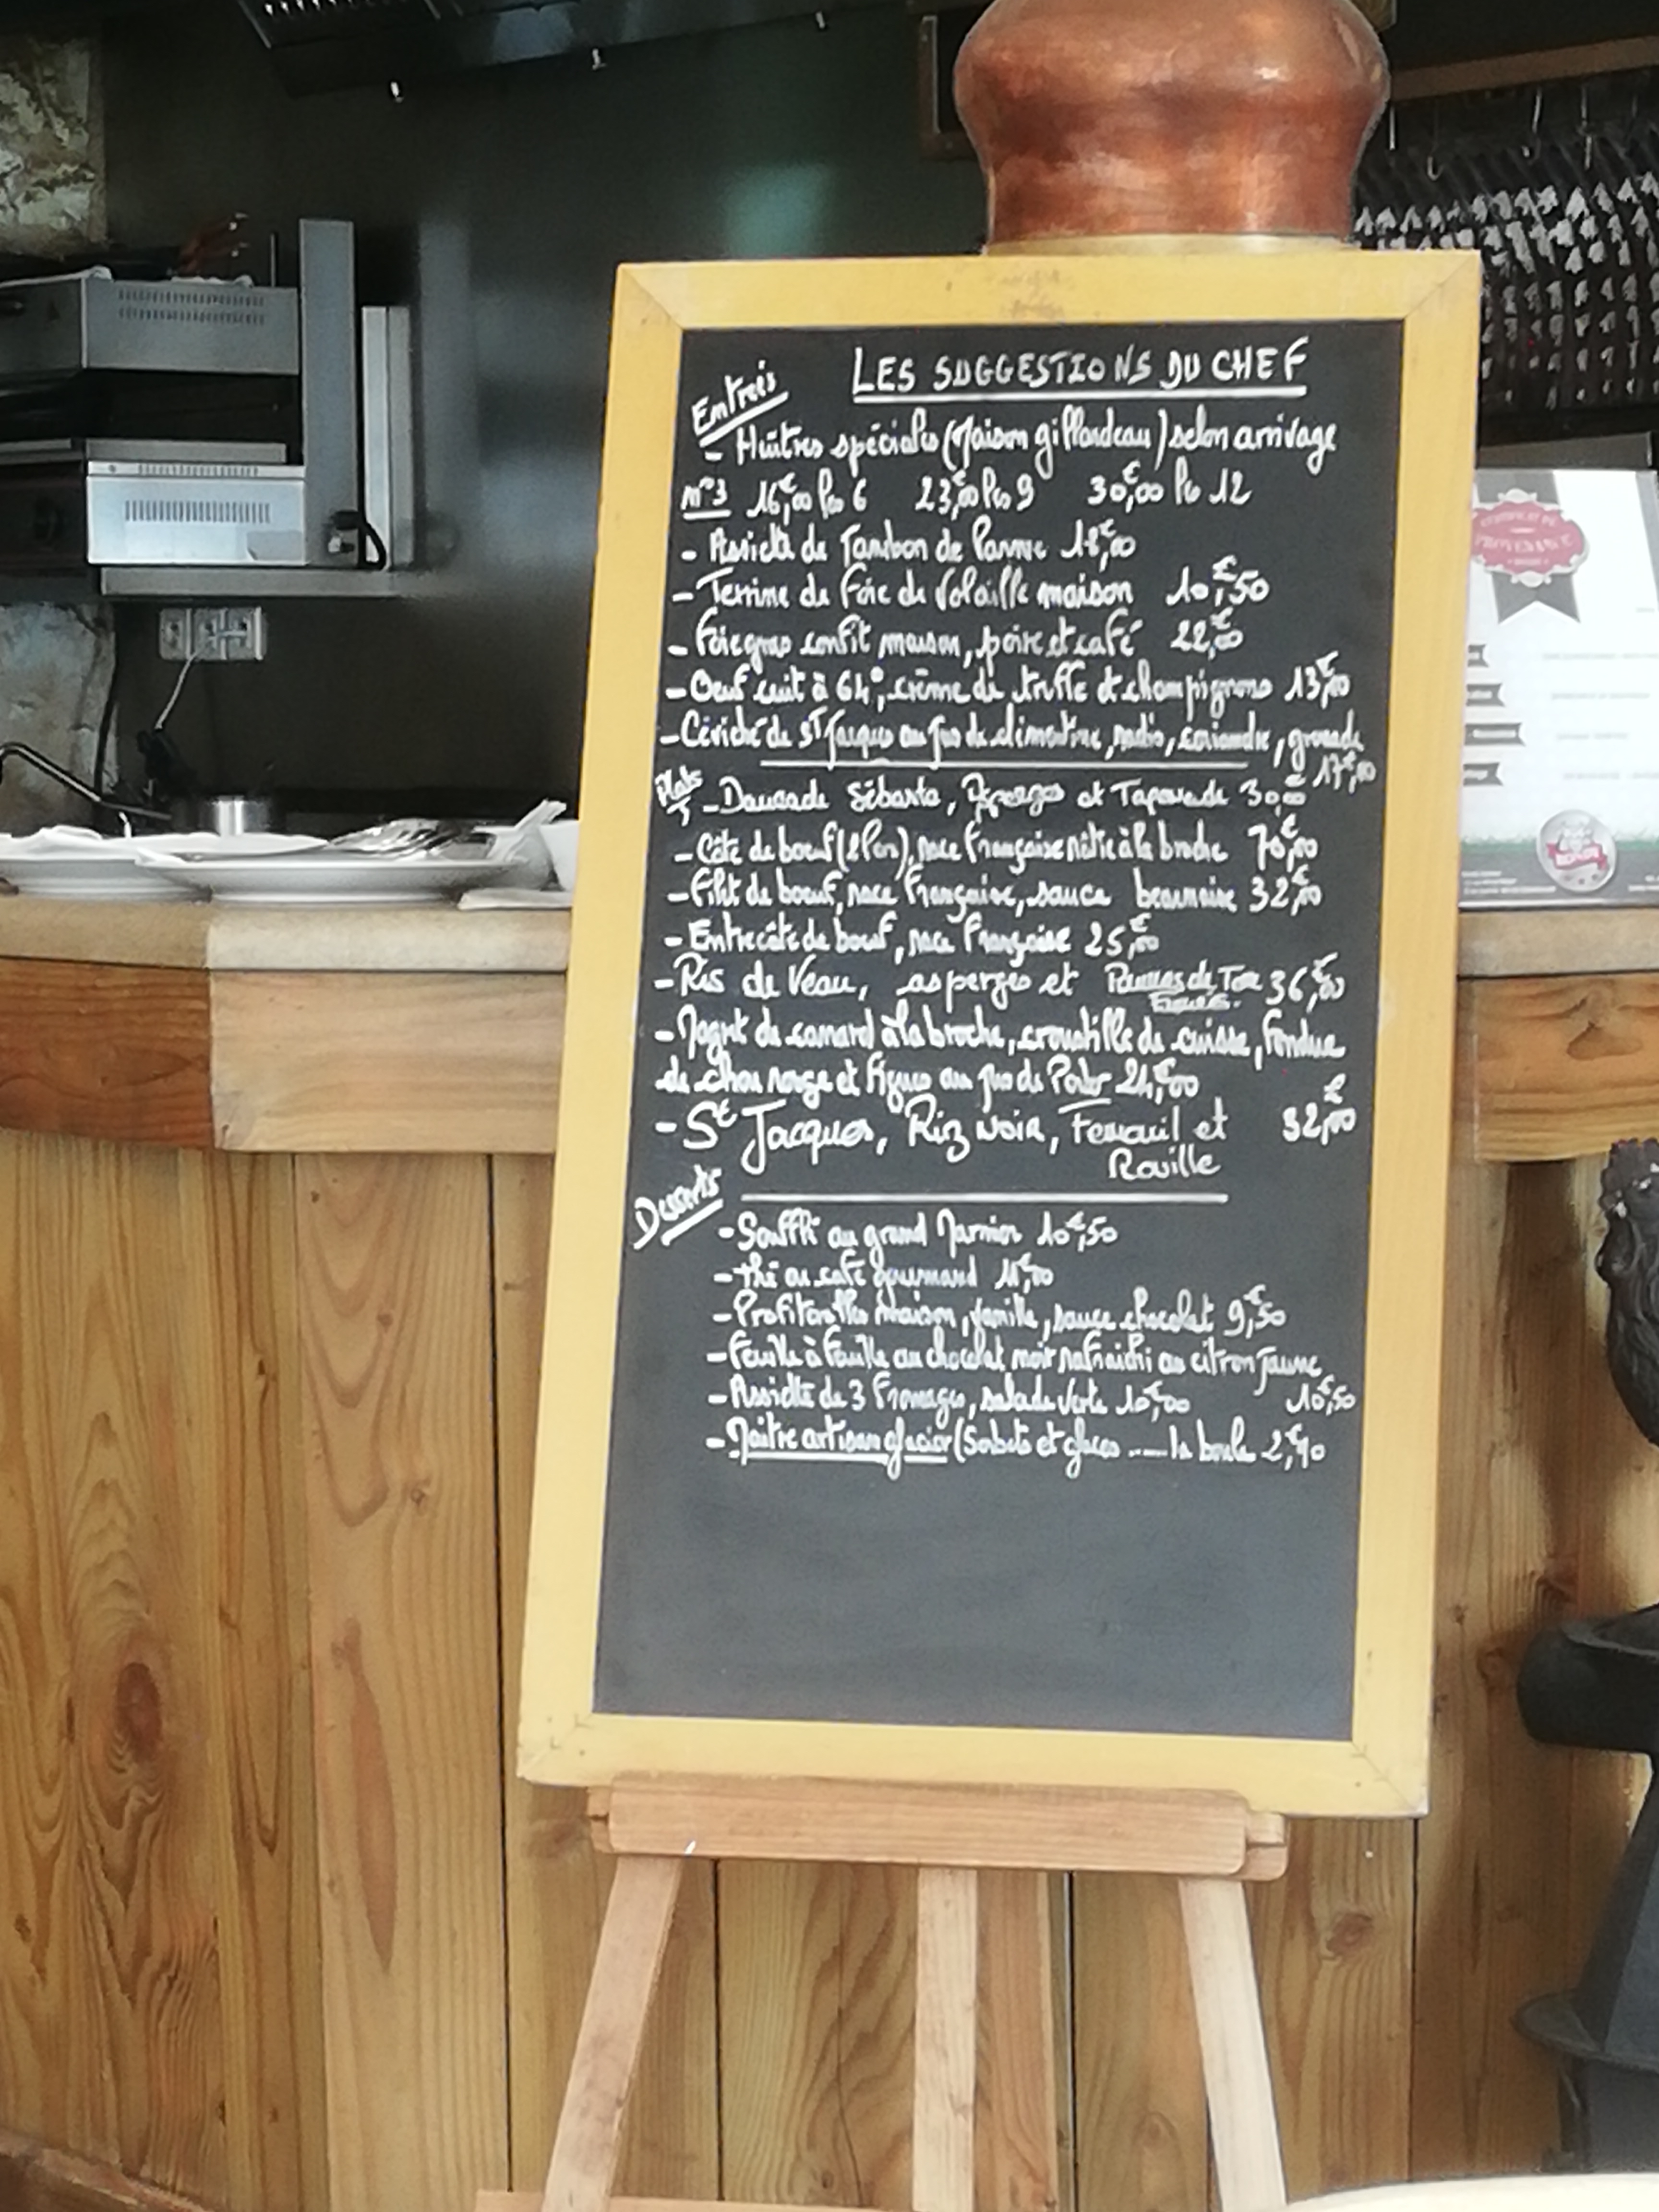 LES SUGGESTIONS DU CHEF
Entrées
- Huîtres spéciales (Maison gillardeau) selon arrivage
n°3 16€,00 les 6 23€,00 les 9 30€,00 les 12
- Assiette de Jambon de Parme 18€,00
- Terrine de Foie de Volaille maison 10€,50
- Foie gras confit maison, poire et café 22€,00
- Oeuf cuit à 64°, crème de truffe et champignons 13€,00
- Céviché de St Jacques au jus de clémentine, radis, coriandre, grenade
17€,00
Plats
- Daurade Sébaste, Asperges et Tapenade 30,00€
- Côte de boeuf (2 Pers), race Française rôtie à la broche 70€,00
- Filet de boeuf, race Française, sauce bearnaise 32€,00
- Entrecôte de boeuf, race Française 25€,00
- Ris de Veau, asperges et Pommes de Terre 36€,00
- Magret de canard à la broche, croustille de cuisse, fondue
de chou rouge et Figues au jus de Porto 24€,00
- St Jacques, Riz noir, Fenouil et 32€,00
Rouille
Desserts
- Soufflé au grand Marnier 10€,50
- thé ou café gourmand 11€,00
- Profiterolles maison, vanille, sauce chocolat 9€,50
- Feuille à Feuille au chocolat noir rafraichi au citron jaune
- Assiette de 3 Fromages, salade verte 10€,00 10€,50
- Maître artisan glacier (Sorbets et glaces ..... la boule 2€,90